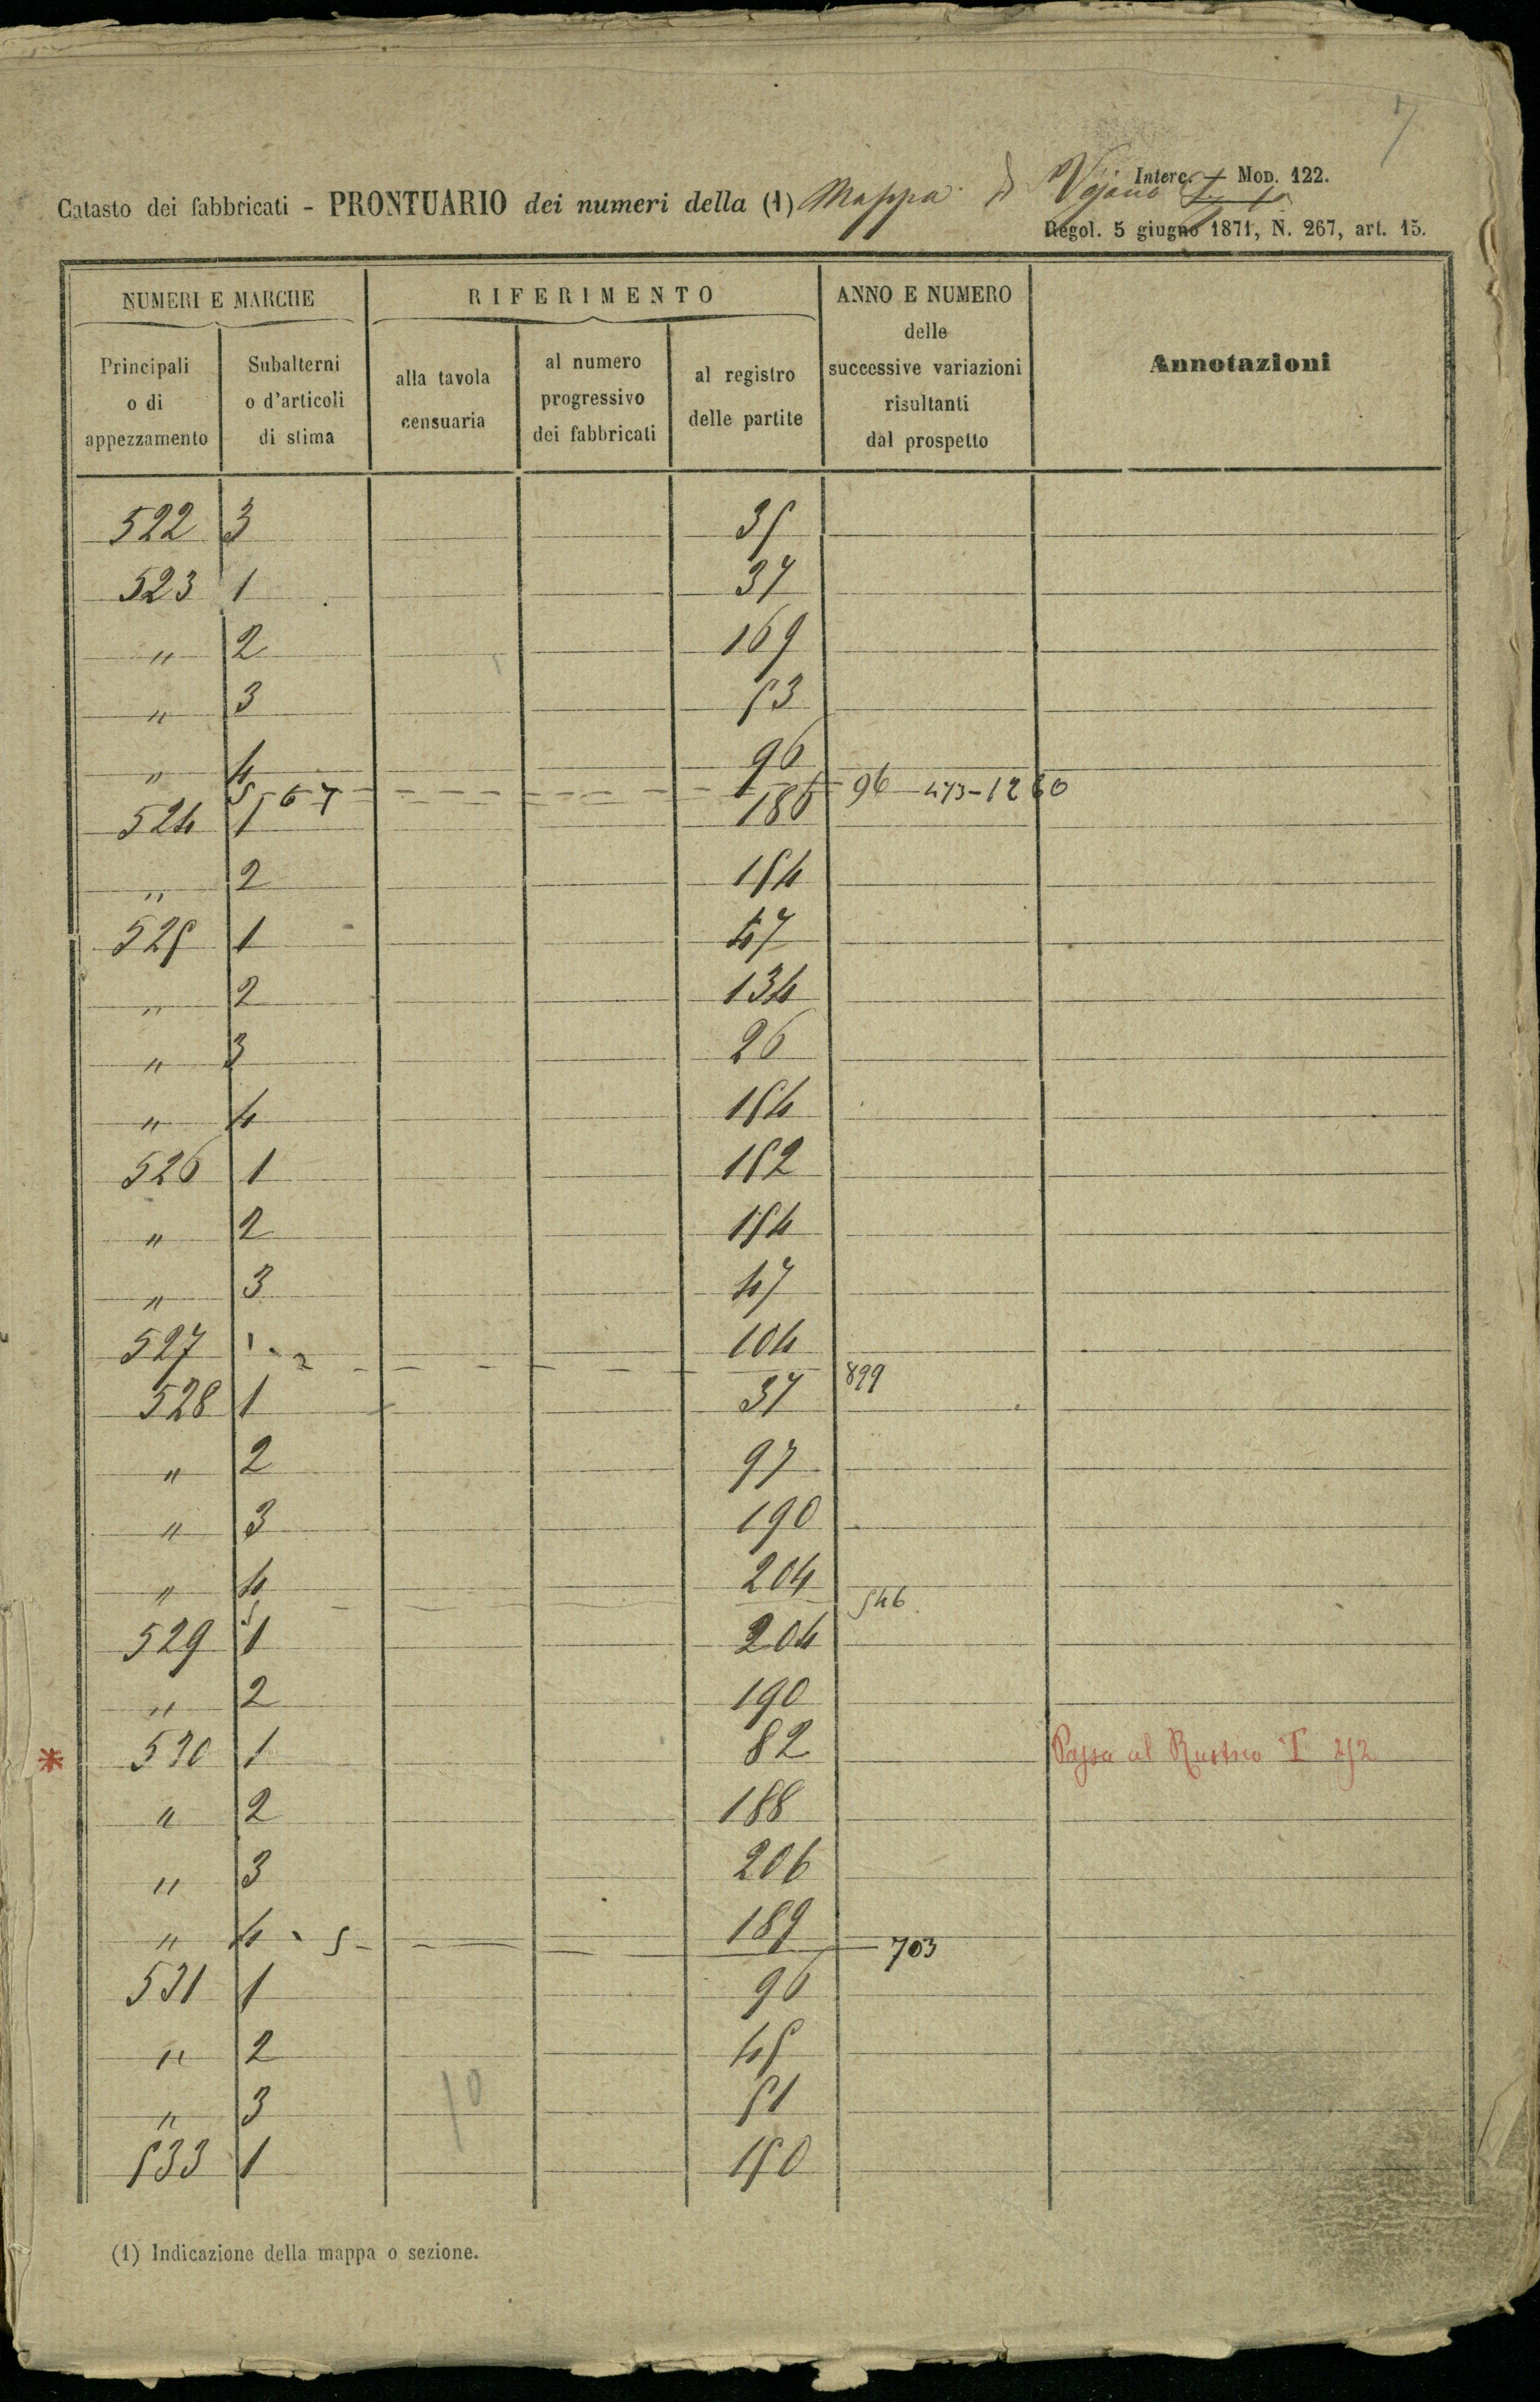 7
Interc. Mod. 122.
Catasto dei fabbricati - PRONTUARIO dei numeri della (1) Mappa di Vejano
Regol. 5 giugno 1871, N. 267, art. 15.
NUMERI E MARCHE RIFERIMENTO ANNO E NUMERO delle successive variazioni risultanti dal prospetto Annotazioni
Principali o di appezzamento Subalterni o d'articoli di stima alla tavola censuaria al numero progressivo dei fabbricati al registro delle partite
522 3 35
523 1 37
" 2 169
" 3 53
" 4 96
5 6 7 96 473-1260
524 1 186
" 2 154
525 1 47
" 2 134
" 3 26
" 4 154
526 1 152
" 2 154
" 3 47
527 1 104
2 899
528 1 37
" 2 97
" 3 190
" 4 204
5 546
529 1 204
" 2 190
* 530 1 82 Passa al Rustico T 252
" 2 188
" 3 206
" 4 189
5 703
531 1 96
" 2 45
" 3 51
10
533 1 150
(1) Indicazione della mappa o sezione.